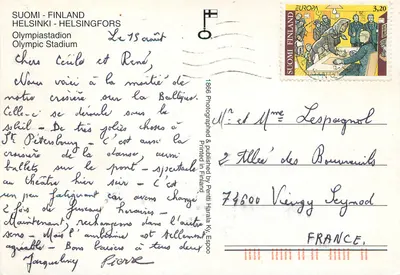 SUOMI - FINLAND
HELSINKI - HELSINGFORS
Olympiastadion
Olympic Stadium
Le 15 août
Chers Cécile et René,
Nous voici à la moitié de
notre croisière sur la Baltique.
Celle-ci se déroule sous le
soleil - De très jolies choses à
St Pétersbourg - C'est aussi la
croisière de la danse, aussi
ballets sur le pont - spectacle
au théâtre hier soir - C'est
un peu fatigant car avons changé
fois de fuseau horaire -
Maintenant, rechangeons dans l'autre
sens - Mais l'ambiance est tellement
agréable - Bons baisers à tous deux
Jacqueline Pierre
Photographed & published by Pentti Harala Ky, Espoo
Printed in Finland
SUOMI FINLAND
EUROPA
3,20
Mr et Mme Lespagnol
2 Allée des Bouvreuils
74600 Viengy Seynod
FRANCE.